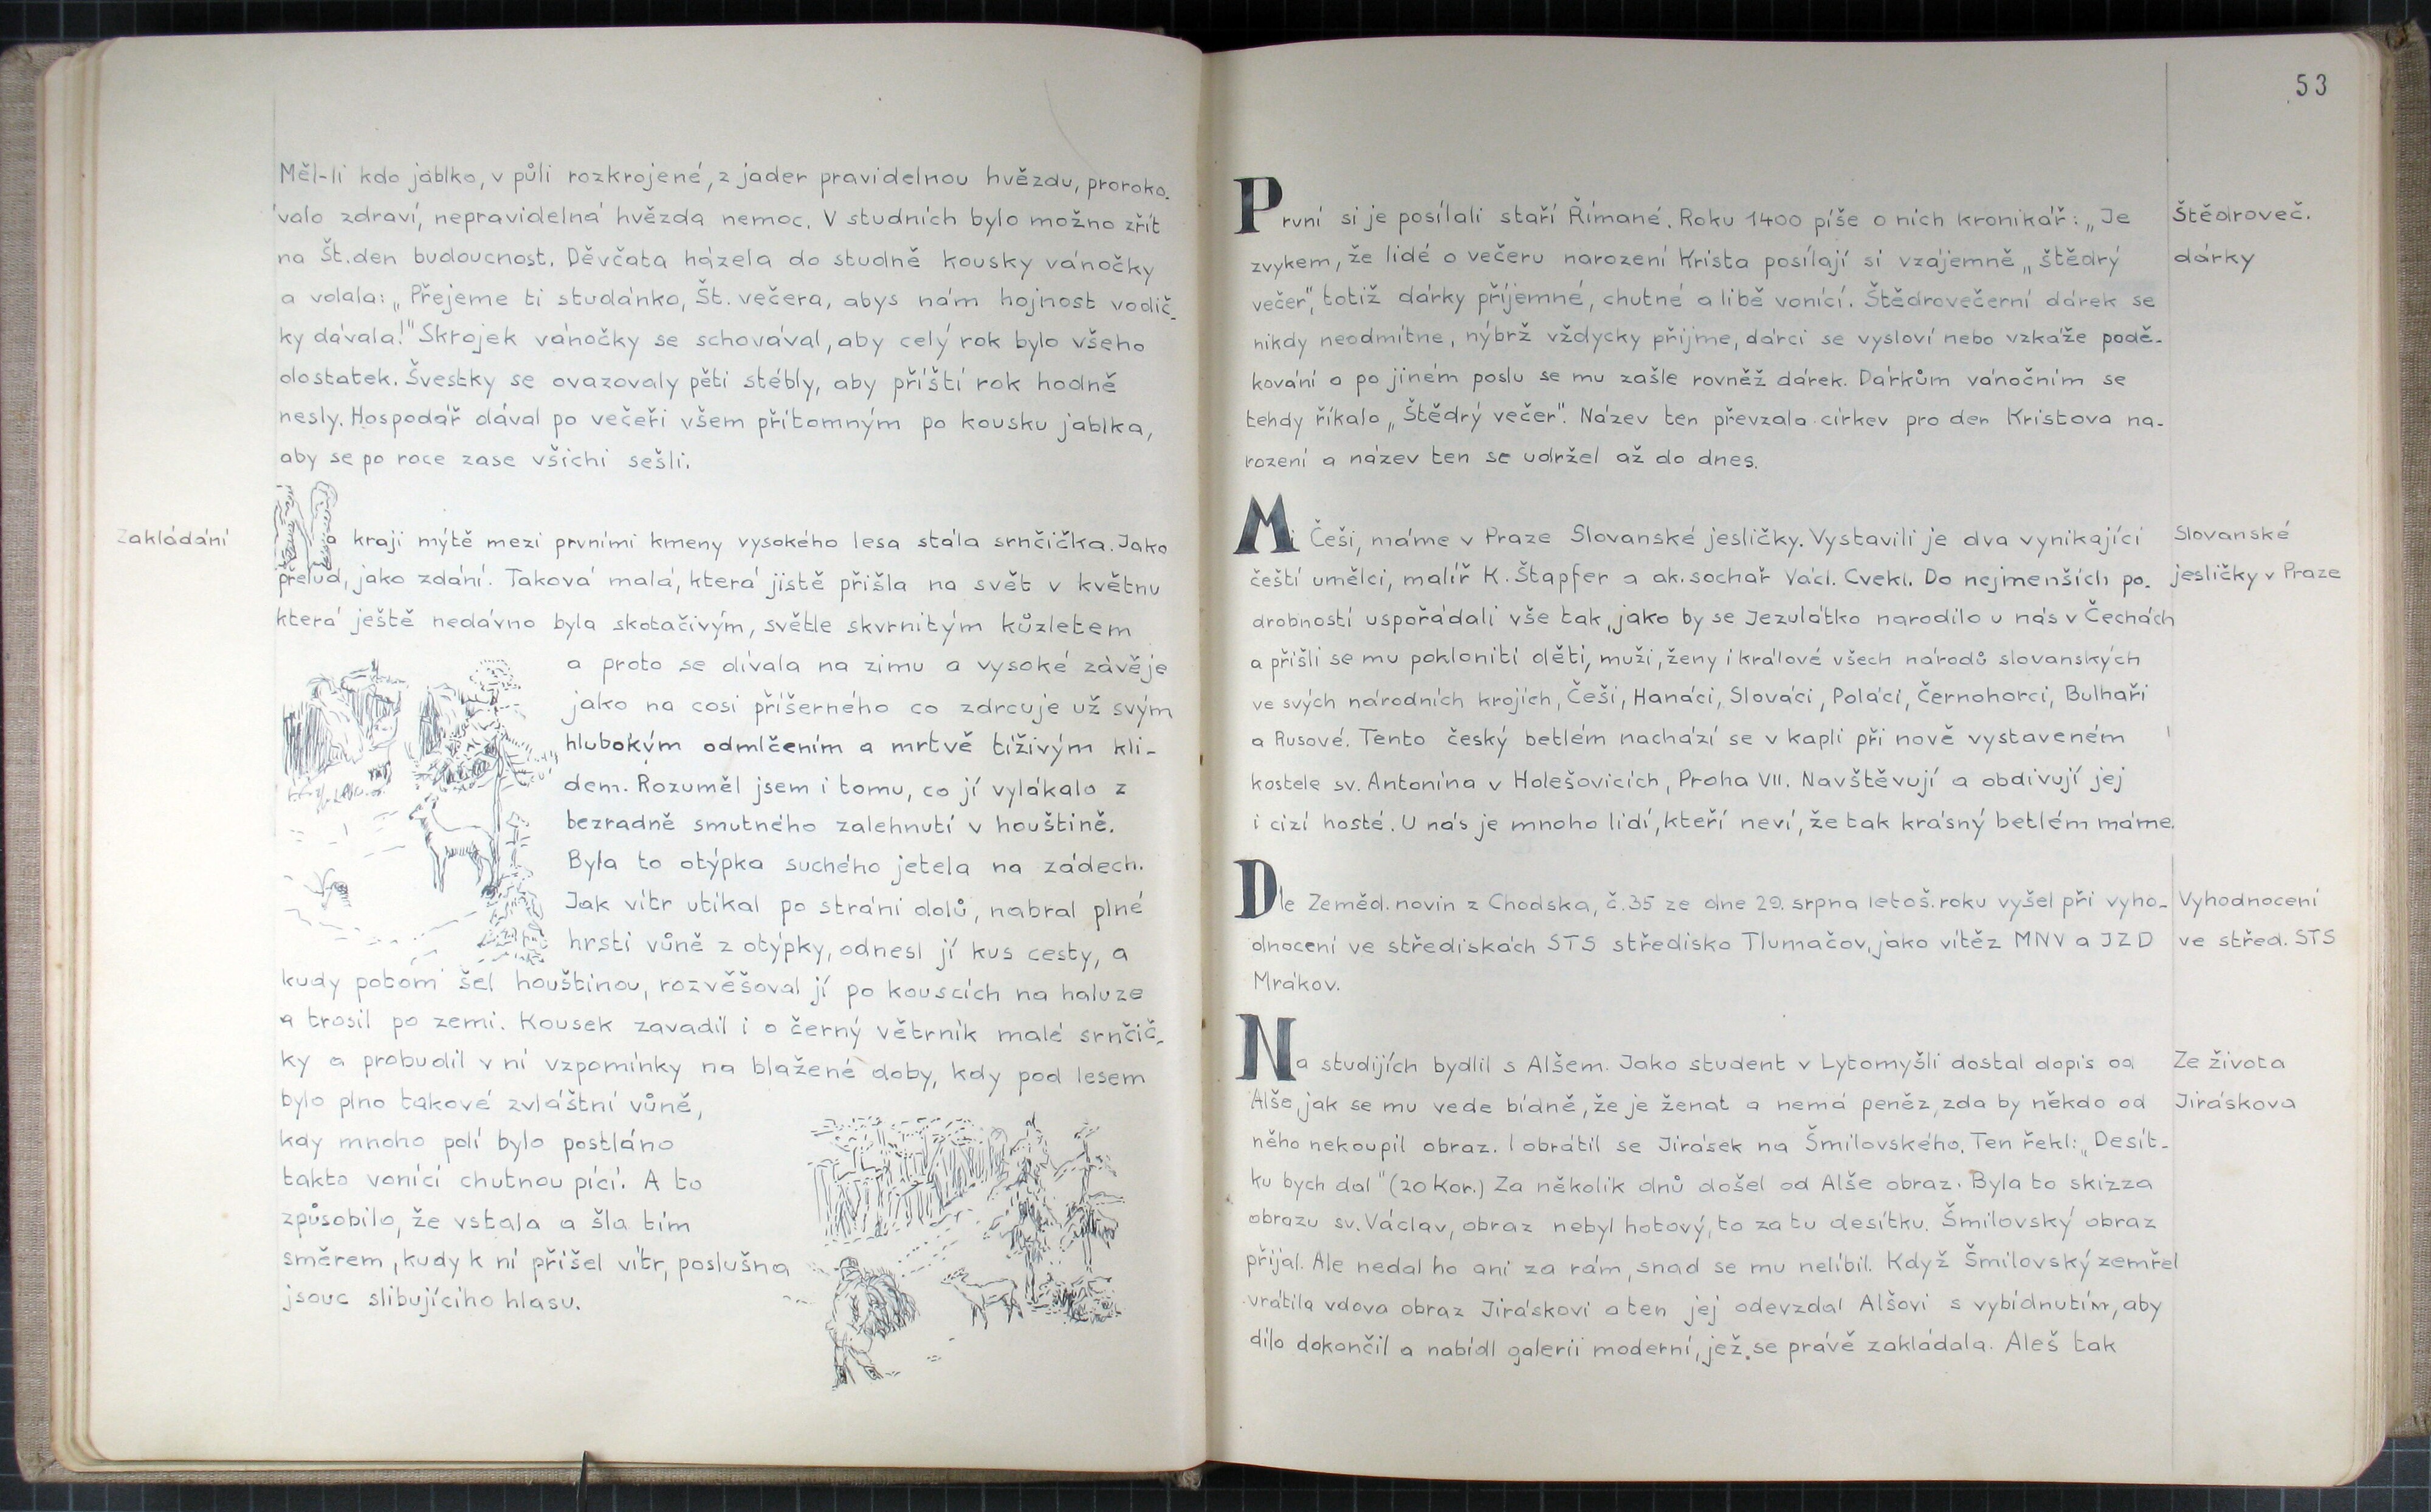 Měl-li kdo jablko, v půli rozkrojené, z jader pravidelnou hvězdu, proroko-
valo zdraví, nepravidelná hvězda nemoc. V studních bylo možno zřít
na Št. den budoucnost. Děvčata házela do studně kousky vánočky
a volala: „Přejeme ti studánko, Št. večera, abys nám hojnost vodič-
ky dávala!" Skrojek vánočky se schovával, aby celý rok bylo všeho
dostatek. Švestky se ovazovaly pěti stébly, aby příští rok hodně
nesly. Hospodář dával po večeři všem přítomným po kousku jablka,
aby se po roce zase všichi sešli.
Zakládání
Na kraji mýtě mezi prvními kmeny vysokého lesa stála srnčička. Jako
přelud, jako zdání. Taková malá, která jistě přišla na svět v květnu
která ještě nedávno byla skotačivým, světle skvrnitým kůzletem
a proto se dívala na zimu a vysoké závěje
jako na cosi příšerného co zdrcuje už svým
hlubokým odmlčením a mrtvě tíživým kli-
dem. Rozuměl jsem i tomu, co jí vylákalo z
bezradně smutného zalehnutí v houštině.
Byla to otýpka suchého jetela na zádech.
Jak vítr utíkal po stráni dolů, nabral plné
hrsti vůně z otýpky, odnesl jí kus cesty, a
kudy potom šel houštinou, rozvěšoval jí po kouscích na haluze
a trosil po zemi. Kousek zavadil i o černý větrník malé srnčič-
ky a probudil v ní vzpomínky na blažené doby, kdy pod lesem
bylo plno takové zvláštní vůně,
kdy mnoho polí bylo postláno
takto vonící chutnou pící. A to
způsobilo, že vstala a šla tím
směrem, kudy k ní přišel vítr, poslušna
jsouc slibujícího hlasu.
53
První si je posílali staří Římané. Roku 1400 píše o nich kronikář: „Je
zvykem, že lidé o večeru narození Krista posílají si vzájemně „štědrý
večer", totiž dárky příjemné, chutné a libě vonící. Štědrovečerní dárek se
nikdy neodmítne, nýbrž vždycky přijme, dárci se vysloví nebo vzkáže podě-
kování a po jiném poslu se mu zašle rovněž dárek. Dárkům vánočním se
tehdy říkalo „Štědrý večer". Název ten převzala církev pro den Kristova na-
rození a název ten se udržel až do dnes.
Štědroveč.
dárky
Mi Češi, máme v Praze Slovanské jesličky. Vystavili je dva vynikající
čeští umělci, malíř K. Štapfer a ak. sochař Václ. Cvekl. Do nejmenších po-
drobností uspořádali vše tak, jako by se Jezulátko narodilo u nás v Čechách
a přišli se mu pokloniti děti, muži, ženy i králové všech národů slovanských
ve svých národních krojích, Češi, Hanáci, Slováci, Poláci, Černohorci, Bulhaři
a Rusové. Tento český betlém nachází se v kapli při nově vystaveném
kostele sv. Antonína v Holešovicích, Praha VII. Navštěvují a obdivují jej
i cizí hosté. U nás je mnoho lidí, kteří neví, že tak krásný betlém máme.
Slovanské
jesličky v Praze
Dle Zeměd. novin z Chodska, č. 35 ze dne 29. srpna letoš. roku vyšel při vyho-
dnocení ve střediskách STS středisko Tlumačov, jako vítěz MNV a JZD
Mrákov.
Vyhodnocení
ve střed. STS
Na studijích bydlil s Alšem. Jako student v Lytomyšli dostal dopis od
Alše, jak se mu vede bídně, že je ženat a nemá peněz, zda by někdo od
něho nekoupil obraz. I obrátil se Jirásek na Šmilovského. Ten řekl: „Desít-
ku bych dal" (20 Kor.) Za několik dnů došel od Alše obraz. Byla to skizza
obrazu sv. Václav, obraz nebyl hotový, to za tu desítku. Šmilovský obraz
přijal. Ale nedal ho ani za rám, snad se mu nelíbil. Když Šmilovský zemřel
vrátila vdova obraz Jiráskovi a ten jej odevzdal Alšovi s vybídnutím, aby
dílo dokončil a nabídl galerii moderní, jež se právě zakládala. Aleš tak
Ze života
Jiráskova